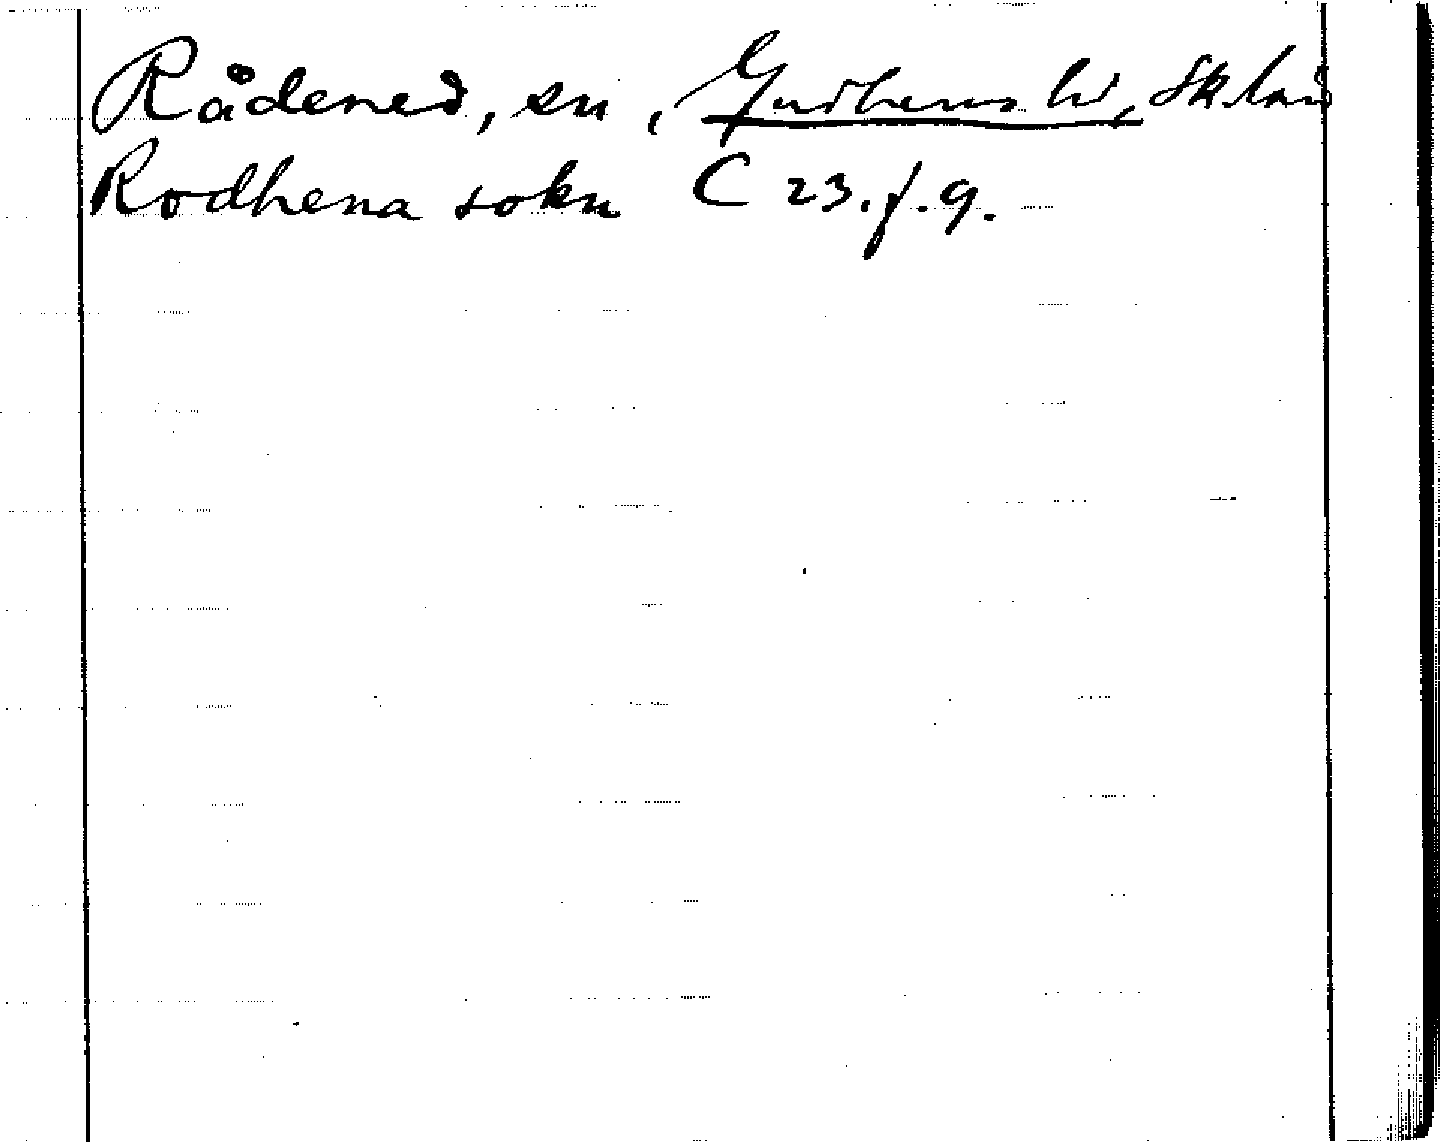 Rådened, sn, Gudhems hd, Sk. län
Rodhena sokn C 23. f. 9.